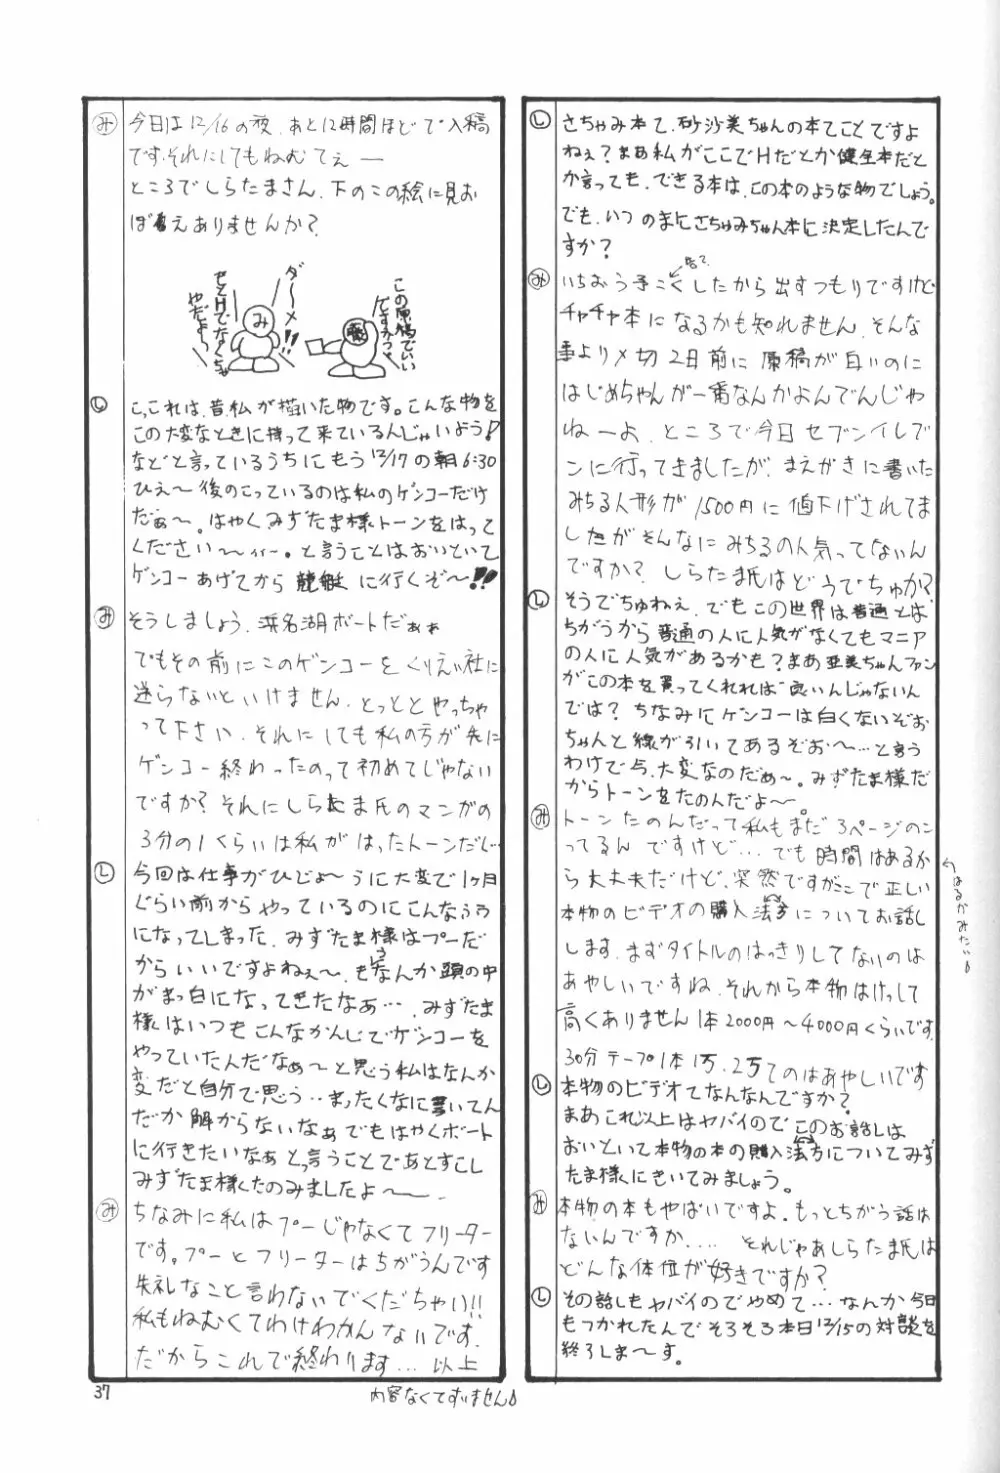 し さちゅみ本て、砂沙美ちゃんの本てことですよ
ねぇ?まあ私がここでHだとか健全本だと
か言っても、できる本は、この本のような物でしょう。
でも、いつのまにさちゅみちゃん本に決定したんで
すか?
み いちおう予こくしたから出すつもりですけど
告?
チャチャ本になるかも知れません。そんな
事より〆切2日前に原稿が白いのに
はじめちゃんが一番なんかよんでんじゃ
ねーよ、ところで今日セブンイレブ
ンに行ってきましたが、まえがきに書いた
みちる人形が1500円に値下げされてま
したがそんなにみちるの人気ってないん
ですか?しらたま氏はどうでちゅか?
し そうでちゅねぇ、でもこの世界は普通とは
ちがうから普通の人に人気がなくてもマニア
の人に人気があるかも?まあ亜美ちゃんファン
がこの本を買ってくれれば良いんじゃないん
では?ちなみにゲンコーは白くないぞお
ちゃんと線が引いてあるぞお〜…と言う
わけで今、大変なのだぁ〜。みずたま様だ
からトーンをたのんだよ〜。
み トーンたのんだって私もまだ3ページのこ
ってるんですけど…でも時間はあるか
ら大丈夫だけど、突然ですがここで正しい
本物のビデオの購入法方についてお話し
します。まずタイトルのはっきりしてないのは
あやしいですね、それから本物はけっして
高くありません1本2000円〜4000円くらいです。
30分テープ1本1万、2万てのはあやしいです
し 本物のビデオてなんなんですか?
まあこれ以上はヤバイのでこのお話しは
おいといて本物の本の購入法方についてみず
たま様にきいてみましょう。
み 本物の本もやばいですよ、もっとちがう話は
ないんですか.... それじゃあしらたま氏は
どんな体位が好きですか?
し その話しもヤバイのでやめて…なんか今日
もつかれたんでそろそろ本日12/15の対談を
終了しま〜す。
み 今日は12/16の夜、あと12時間ほどで入稿
です、それにしてもねむてぇー
ところでしらたまさん、下のこの絵に見お
ぼえありませんか?
ダーメ!!
せとHでなくちゃやだよっ
み
この原稿でいいですかっ
し こ、これは、昔、私が描いた物です。こんな物を
この大変なときに持って来ている人じゃいよう!
などと言っているうちにもう12/17の朝6:30
ひえ〜後のこっているのは私のゲンコーだけ
だぁ〜。はやくみずたま様トーンをはって
ください〜。と言うことはおいといて
ゲンコーあげてから競艇に行くぞ〜!!
み そうしましょう、浜名湖ボートだぁぁ
でもその前にこのゲンコーをくりえい社に
送らないといけません、とっととやっちゃ
って下さい、それにしても私の方が先に
ゲンコー終わったのって初めてじゃない
ですか?それにしらたま氏のマンガの
3分の1くらいは私がはったトーンだし
し 今回は仕事がひじょ〜うに大変で1ヶ月
ぐらい前からやっているのにこんなふう
になってしまった、みずたま様はプーだ
からいいですよねぇ〜、もうなんか頭の中
がまっ白になってきたなあ…、みずたま
様はいつもこんなかんじでゲンコーを
やっていたんだなぁ〜と思う私はなんか
変だと自分で思う‥まったくなに書いてん
だか解からないなぁでもはやくボート
に行きたいなぁと言うことであとすこし
みずたま様くたのみましたよ〜。
み ちなみに私はプーじゃなくてフリーター
です。プーとフリーターはちがうんです
失礼なこと言わないでくだちゃい!!
私もねむくてわけわかんないです。
だからこれで終わります…以上
37
内容なくてすいません